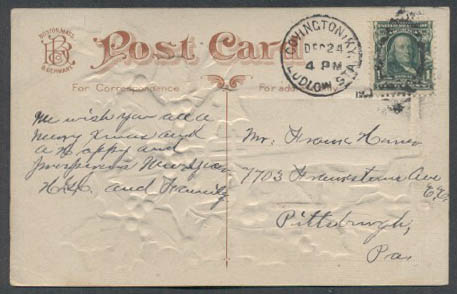 BOSTON, MASS.
B
& GERMANY.
Post Card
For Correspondence
For add
COVINGTON, KY.
DEC 24
4 PM
LUDLOW, STA.
We wish you all a
merry Xmas and
a Happy and
prosperous New Year
and Family
Mr. Frank
1703 Frankstown Ave
E.E.
Pittsburgh,
Pa